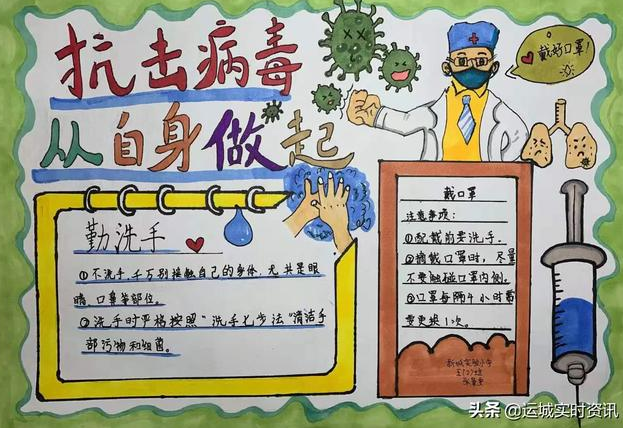 抗击病毒
从自身做起
戴好口罩!
勤洗手
①不洗手,千万别接触自己的身体,尤其是眼
睛、口鼻等部位。
②洗手时严格按照“洗手七步法”清洁手
部污物和细菌。
戴口罩
注意事项:
①配戴前要洗手。
②摘戴口罩时,尽量
不要触碰口罩内侧。
③口罩每隔4小时需
要更换1次。
新城实验小学
头条 @运城实时资讯